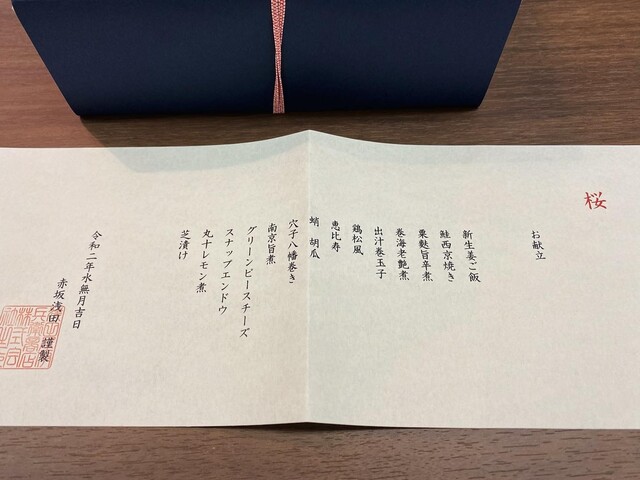 桜
お献立
新生姜ご飯
鮭西京焼き
粟麩旨辛煮
巻海老艶煮
出汁巻玉子
鶏松風
恵比寿
蛸 胡瓜
穴子八幡巻き
南京旨煮
グリーンピースチーズ
スナップエンドウ
丸十レモン煮
芝漬け
令和二年水無月吉日
赤坂浅田 謹製